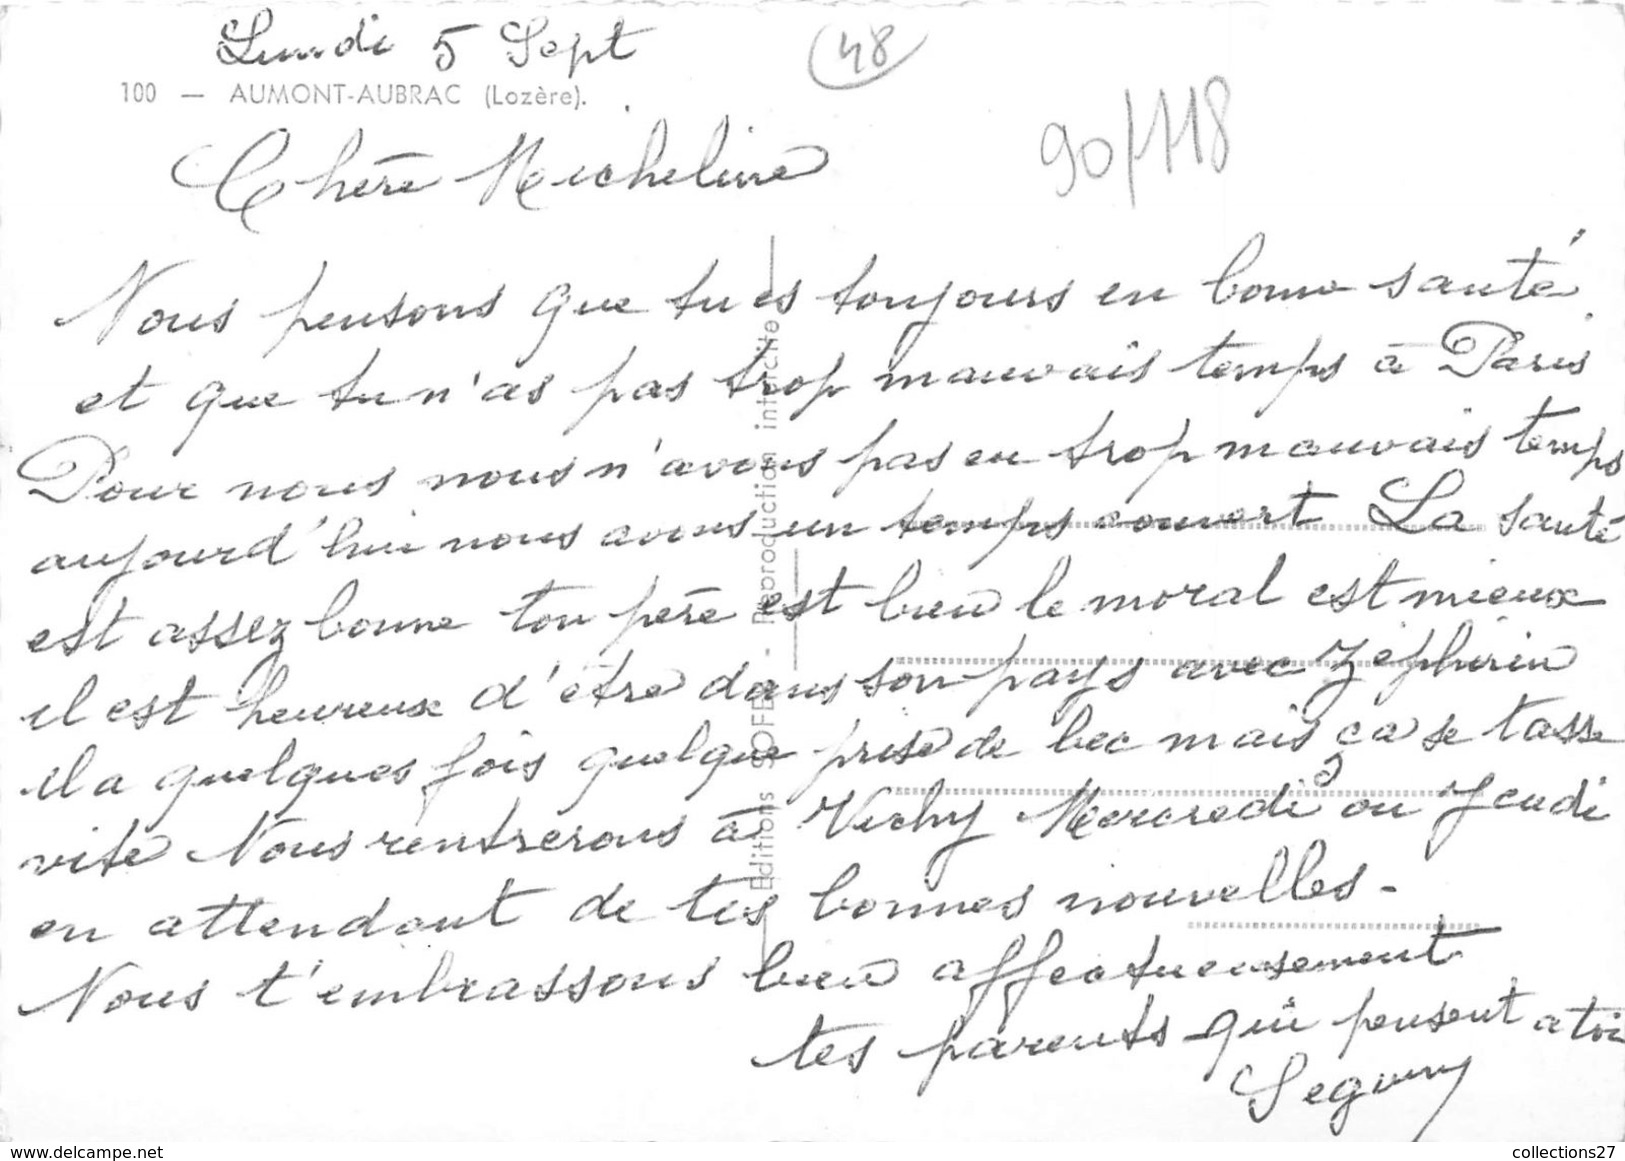 Lundi 5 Sept
48
100 — AUMONT-AUBRAC (Lozère).
90/118
Chère Micheline
Nous pensons que tu es toujours en bonne santé
et que tu n'as pas trop mauvais temps à Paris
Pour nous nous n'avons pas eu trop mauvais temps
aujourd'hui nous avons un temps couvert La santé
est assez bonne ton père est bien le moral est mieux
il est heureux d'être dans son pays avec Zéphirin
il a quelques fois quelque prise de bec mais ça se tasse
vite Nous rentrerons à Vichy Mercredi ou Jeudi
en attendant de tes bonnes nouvelles -
Nous t'embrassons bien affectueusement
tes parents qui pensent a toi
Editions SOFER - Reproduction interdite
www.delcampe.net
collections27